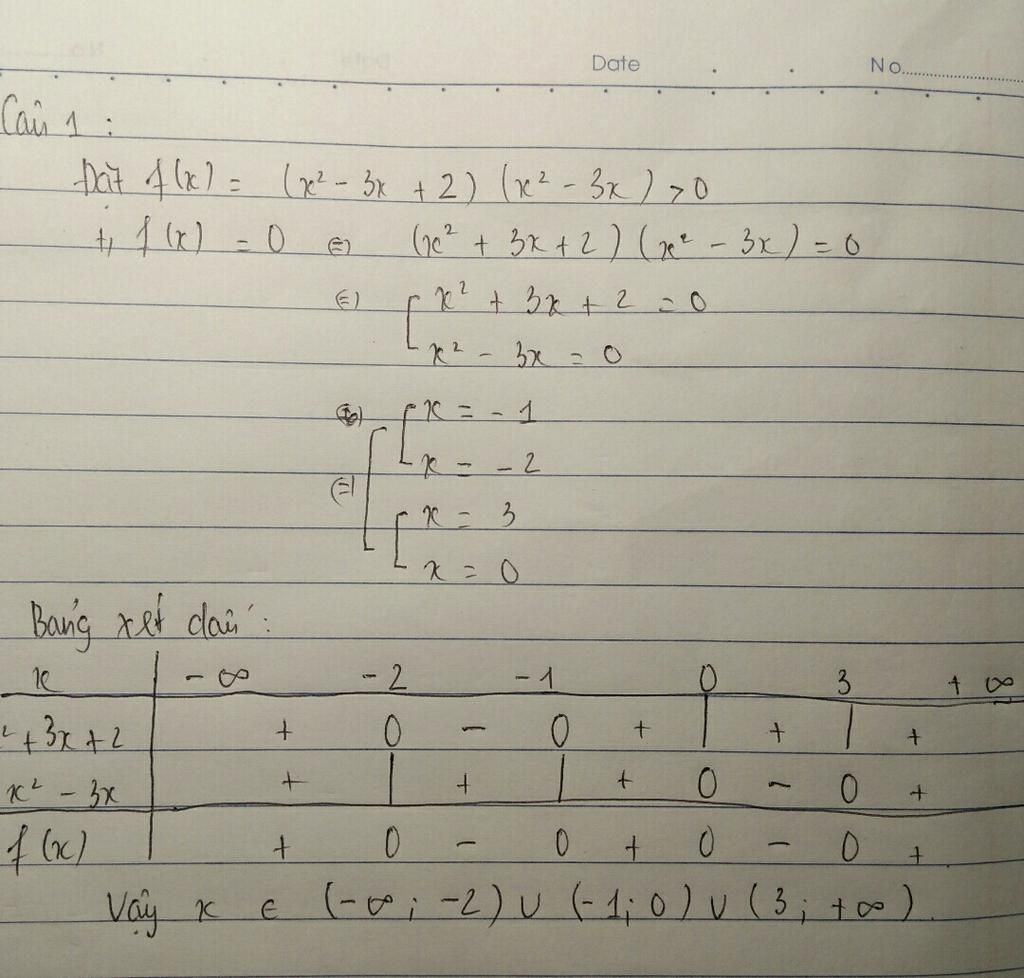 Date . . No.
Câu 1 :
Đặt f(x) = (x² - 3x + 2) (x² - 3x) > 0
+, f(x) = 0 ⇔ (x² + 3x + 2) (x² - 3x) = 0
⇔ [ x² + 3x + 2 = 0
x² - 3x = 0
[ x = - 1
x = - 2
⇔ [ [ x = 3
x = 0
Bảng xét dấu :
x | - ∞ - 2 - 1 0 3 + ∞
² + 3x + 2 | + 0 - 0 + | + | +
x² - 3x | + | + | + 0 - 0 +
f(x) | + 0 - 0 + 0 - 0 +
Vậy x ∈ (-∞ ; -2) ∪ (-1; 0) ∪ (3 ; +∞).